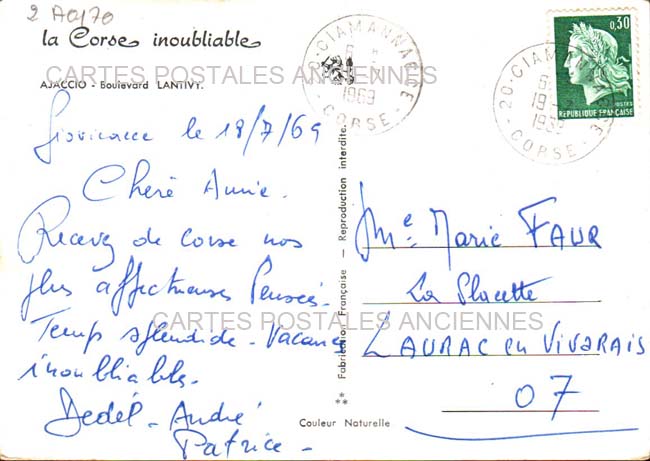 2 A0/70
la Corse inoubliable
CARTES POSTALES ANCIENNES
AJACCIO - Boulevard LANTIVY.
le 18/7/69
Chère Annie.
Recevez de Corse nos
plus affectueuses Pensées.
Temps splendide - Vacances
inoubliables.
Dedél - André
Patrice -
CARTES POSTALES ANCIENNES
** Fabrication Française - Reproduction interdite.
Couleur Naturelle
20 - CIAMANNACCE
1969
CORSE
20 - CIAMANNACCE
CORSE
0,30
POSTES
REPUBLIQUE FRANÇAISE
Me Marie FAUR
La Placette
LAURAC en VIVARAIS
07